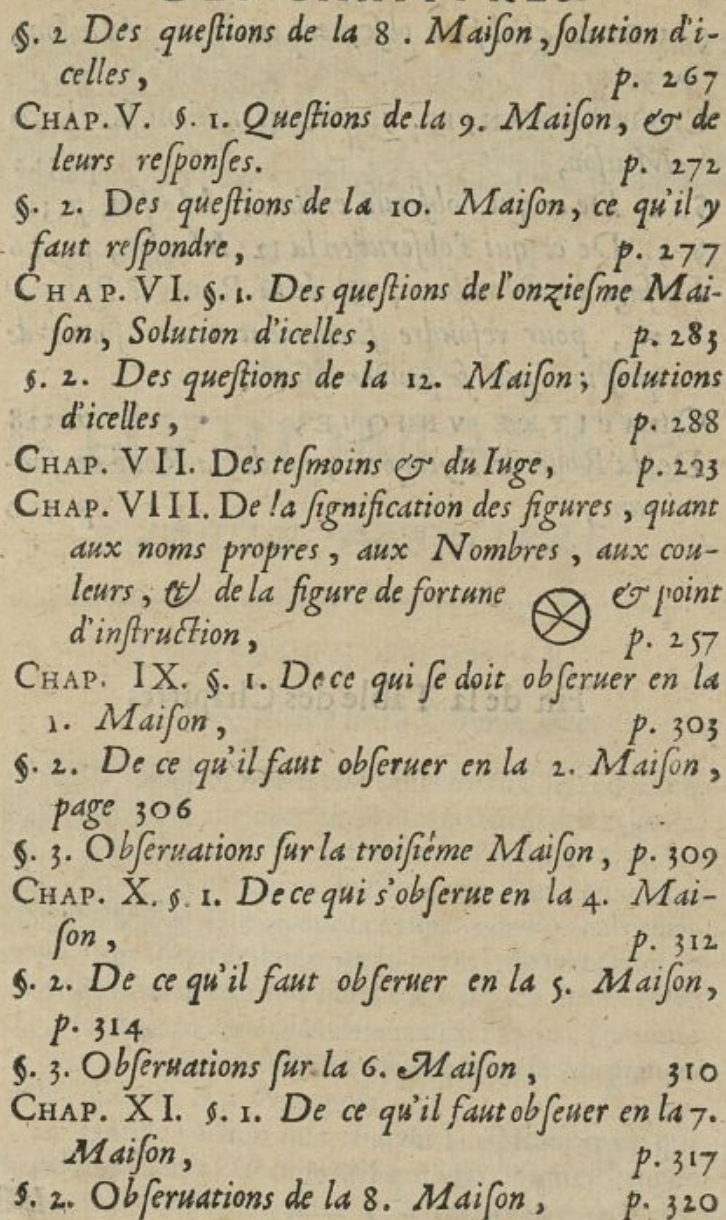 §. 2 Des queſtions de la 8. Maiſon, ſolution d'i-
celles, p. 267
CHAP. V. §. 1. Queſtions de la 9. Maiſon, & de
leurs reſponſes. p. 272
§. 2. Des queſtions de la 10. Maiſon, ce qu'il y
faut reſpondre, p. 277
CHAP. VI. §. 1. Des queſtions de l'onzieſme Mai-
ſon, Solution d'icelles, p. 283
§. 2. Des queſtions de la 12. Maiſon; ſolutions
d'icelles, p. 288
CHAP. VII. Des teſmoins & du Iuge, p. 293
CHAP. VIII. De la ſignification des figures, quant
aux noms propres, aux Nombres, aux cou-
leurs, & de la figure de fortune & point
d'inſtruction, p. 257
CHAP. IX. §. 1. De ce qui ſe doit obſeruer en la
1. Maiſon, p. 303
§. 2. De ce qu'il faut obſeruer en la 2. Maiſon,
page 306
§. 3. Obſeruations ſur la troiſiéme Maiſon, p. 309
CHAP. X. §. 1. De ce qui s'obſerue en la 4. Mai-
ſon, p. 312
§. 2. De ce qu'il faut obſeruer en la 5. Maiſon,
p. 314
§. 3. Obſeruations ſur la 6. Maiſon, 310
CHAP. XI. §. 1. De ce qu'il faut obſeuer en la 7.
Maiſon, p. 317
§. 2. Obſeruations de la 8. Maiſon, p. 320